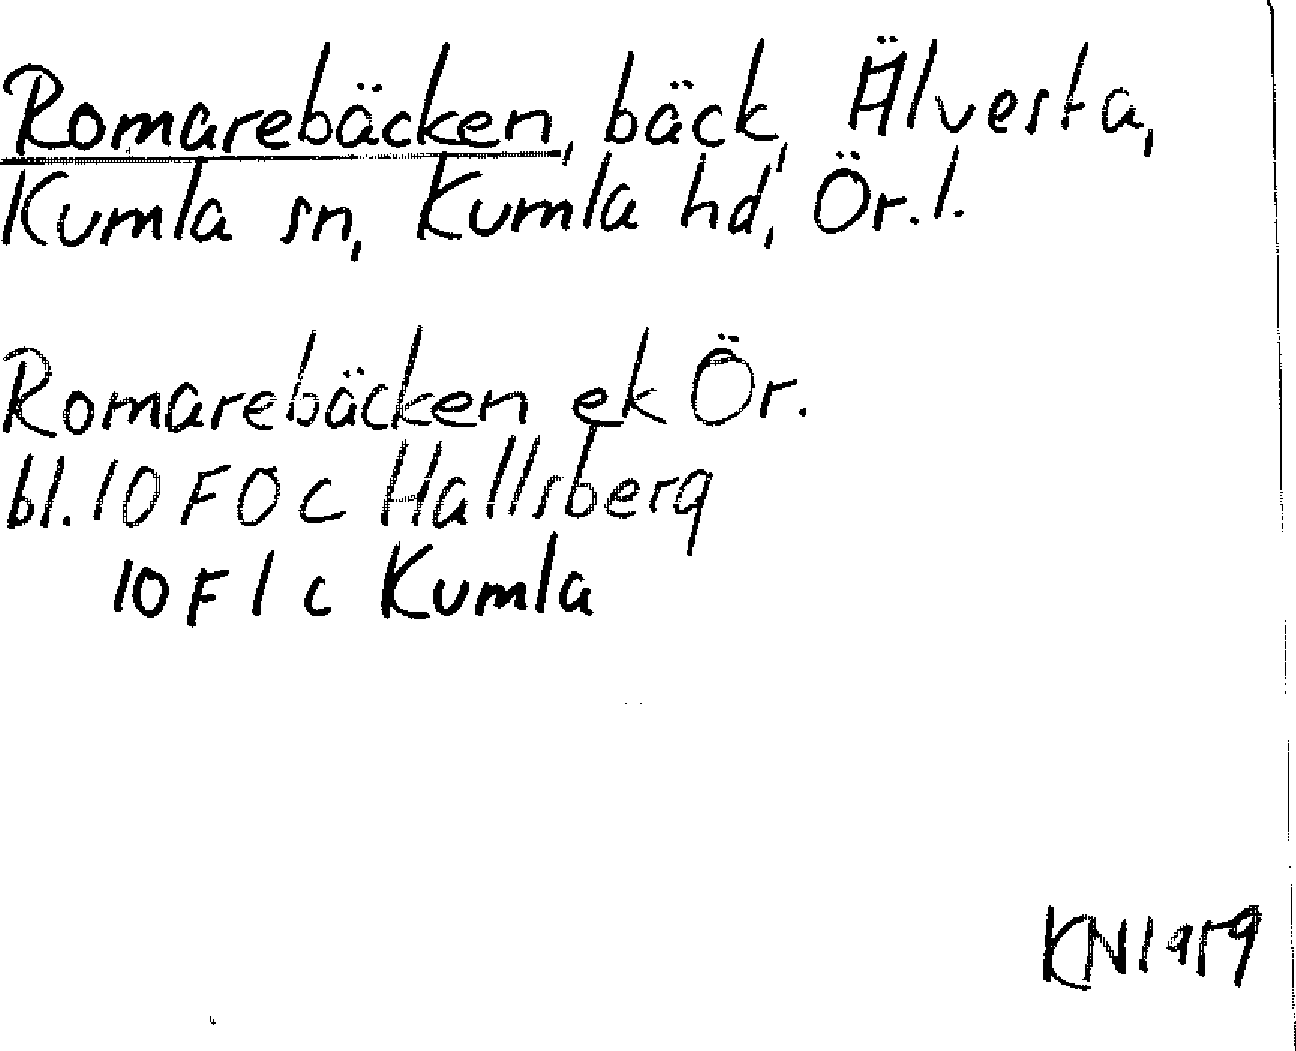 Romarebäcken, bäck, Älvesta,
Kumla sn, Kumla hd, Ör. l.
Romarebäcken ek Ör.
bl. 10 F 0 c Hallsberg
10 F 1 c Kumla
KN 1959